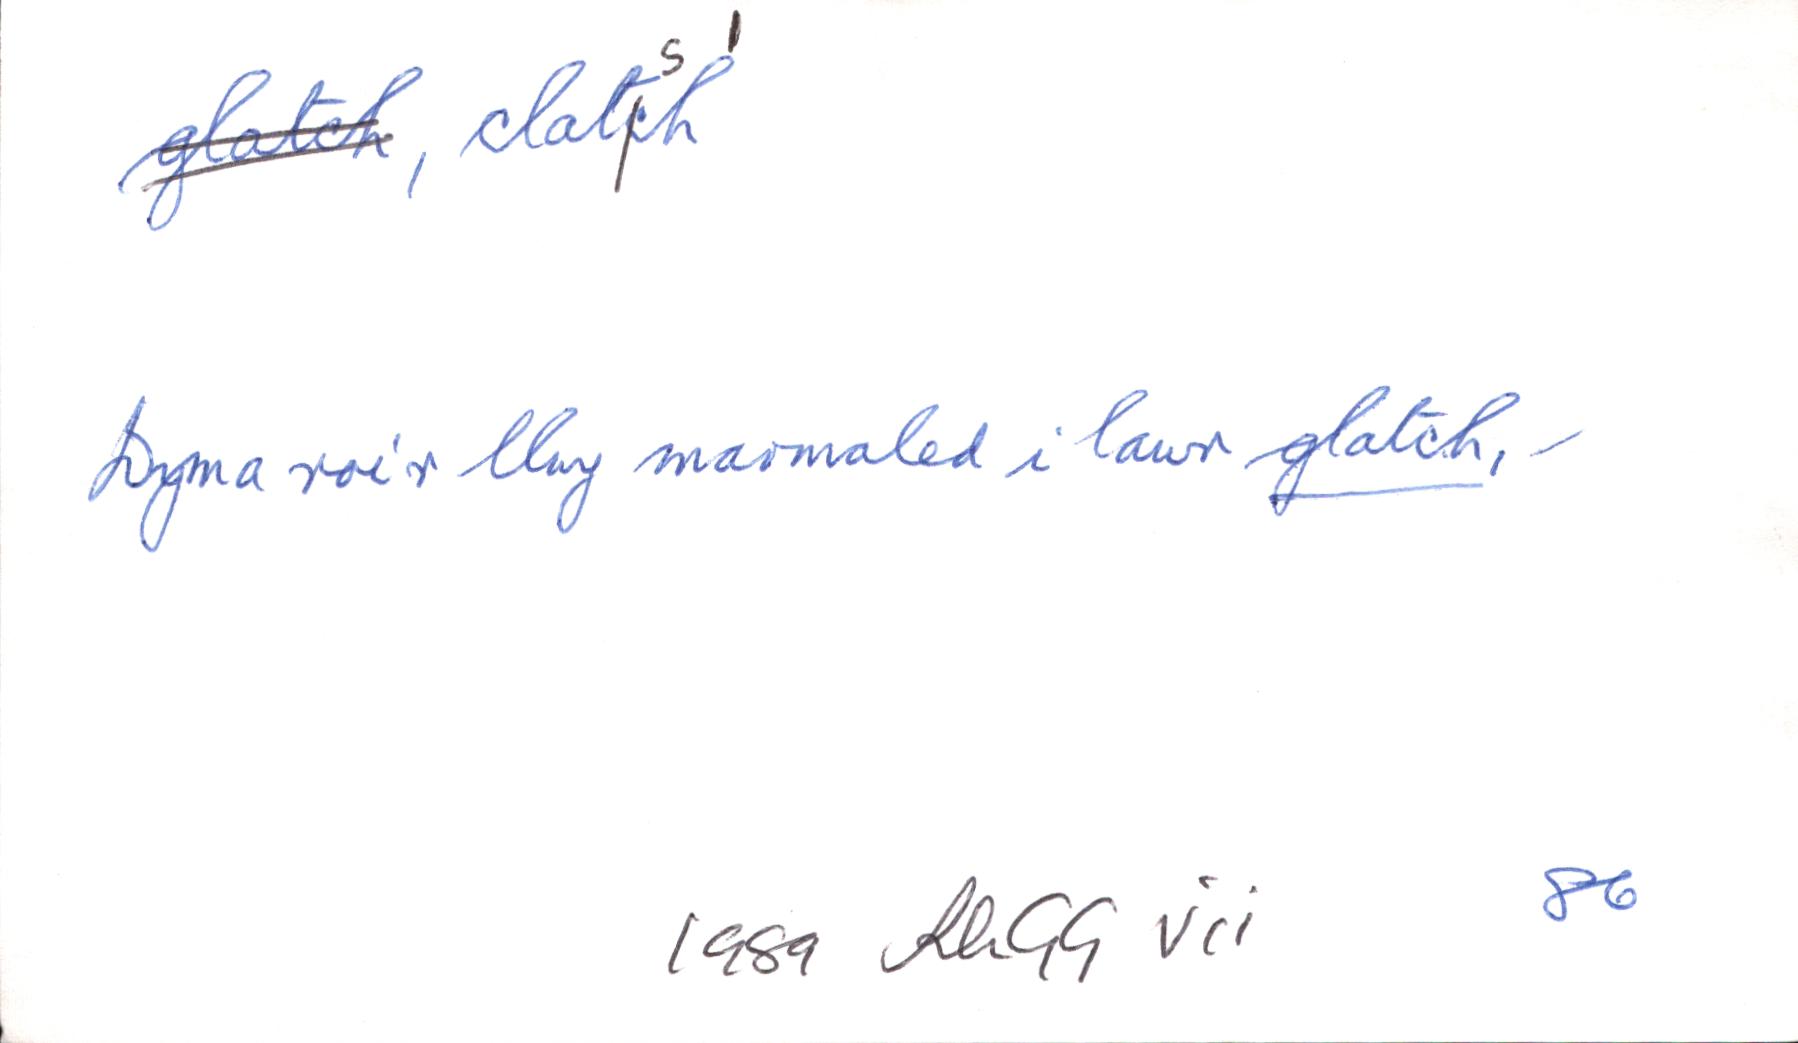 glatch, clatsh¹
Dyma roi'r llwy marmaled i lawr glatch, –
1989 RhGG vii 86